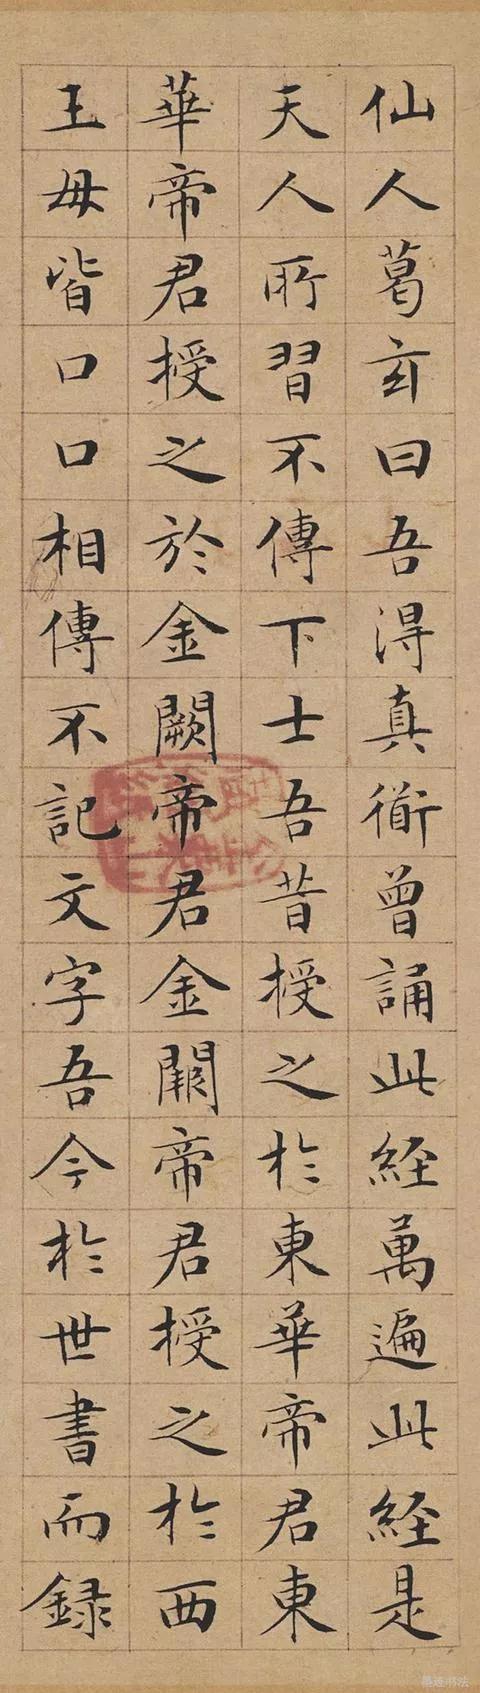 仙人葛玄曰吾淂真衜曾誦此經萬遍此經是
天人所習不傳下士吾昔授之於東華帝君東
華帝君授之於金闕帝君金闕帝君授之於西
王母皆口口相傳不記文字吾今於世書而録
墨迹书法